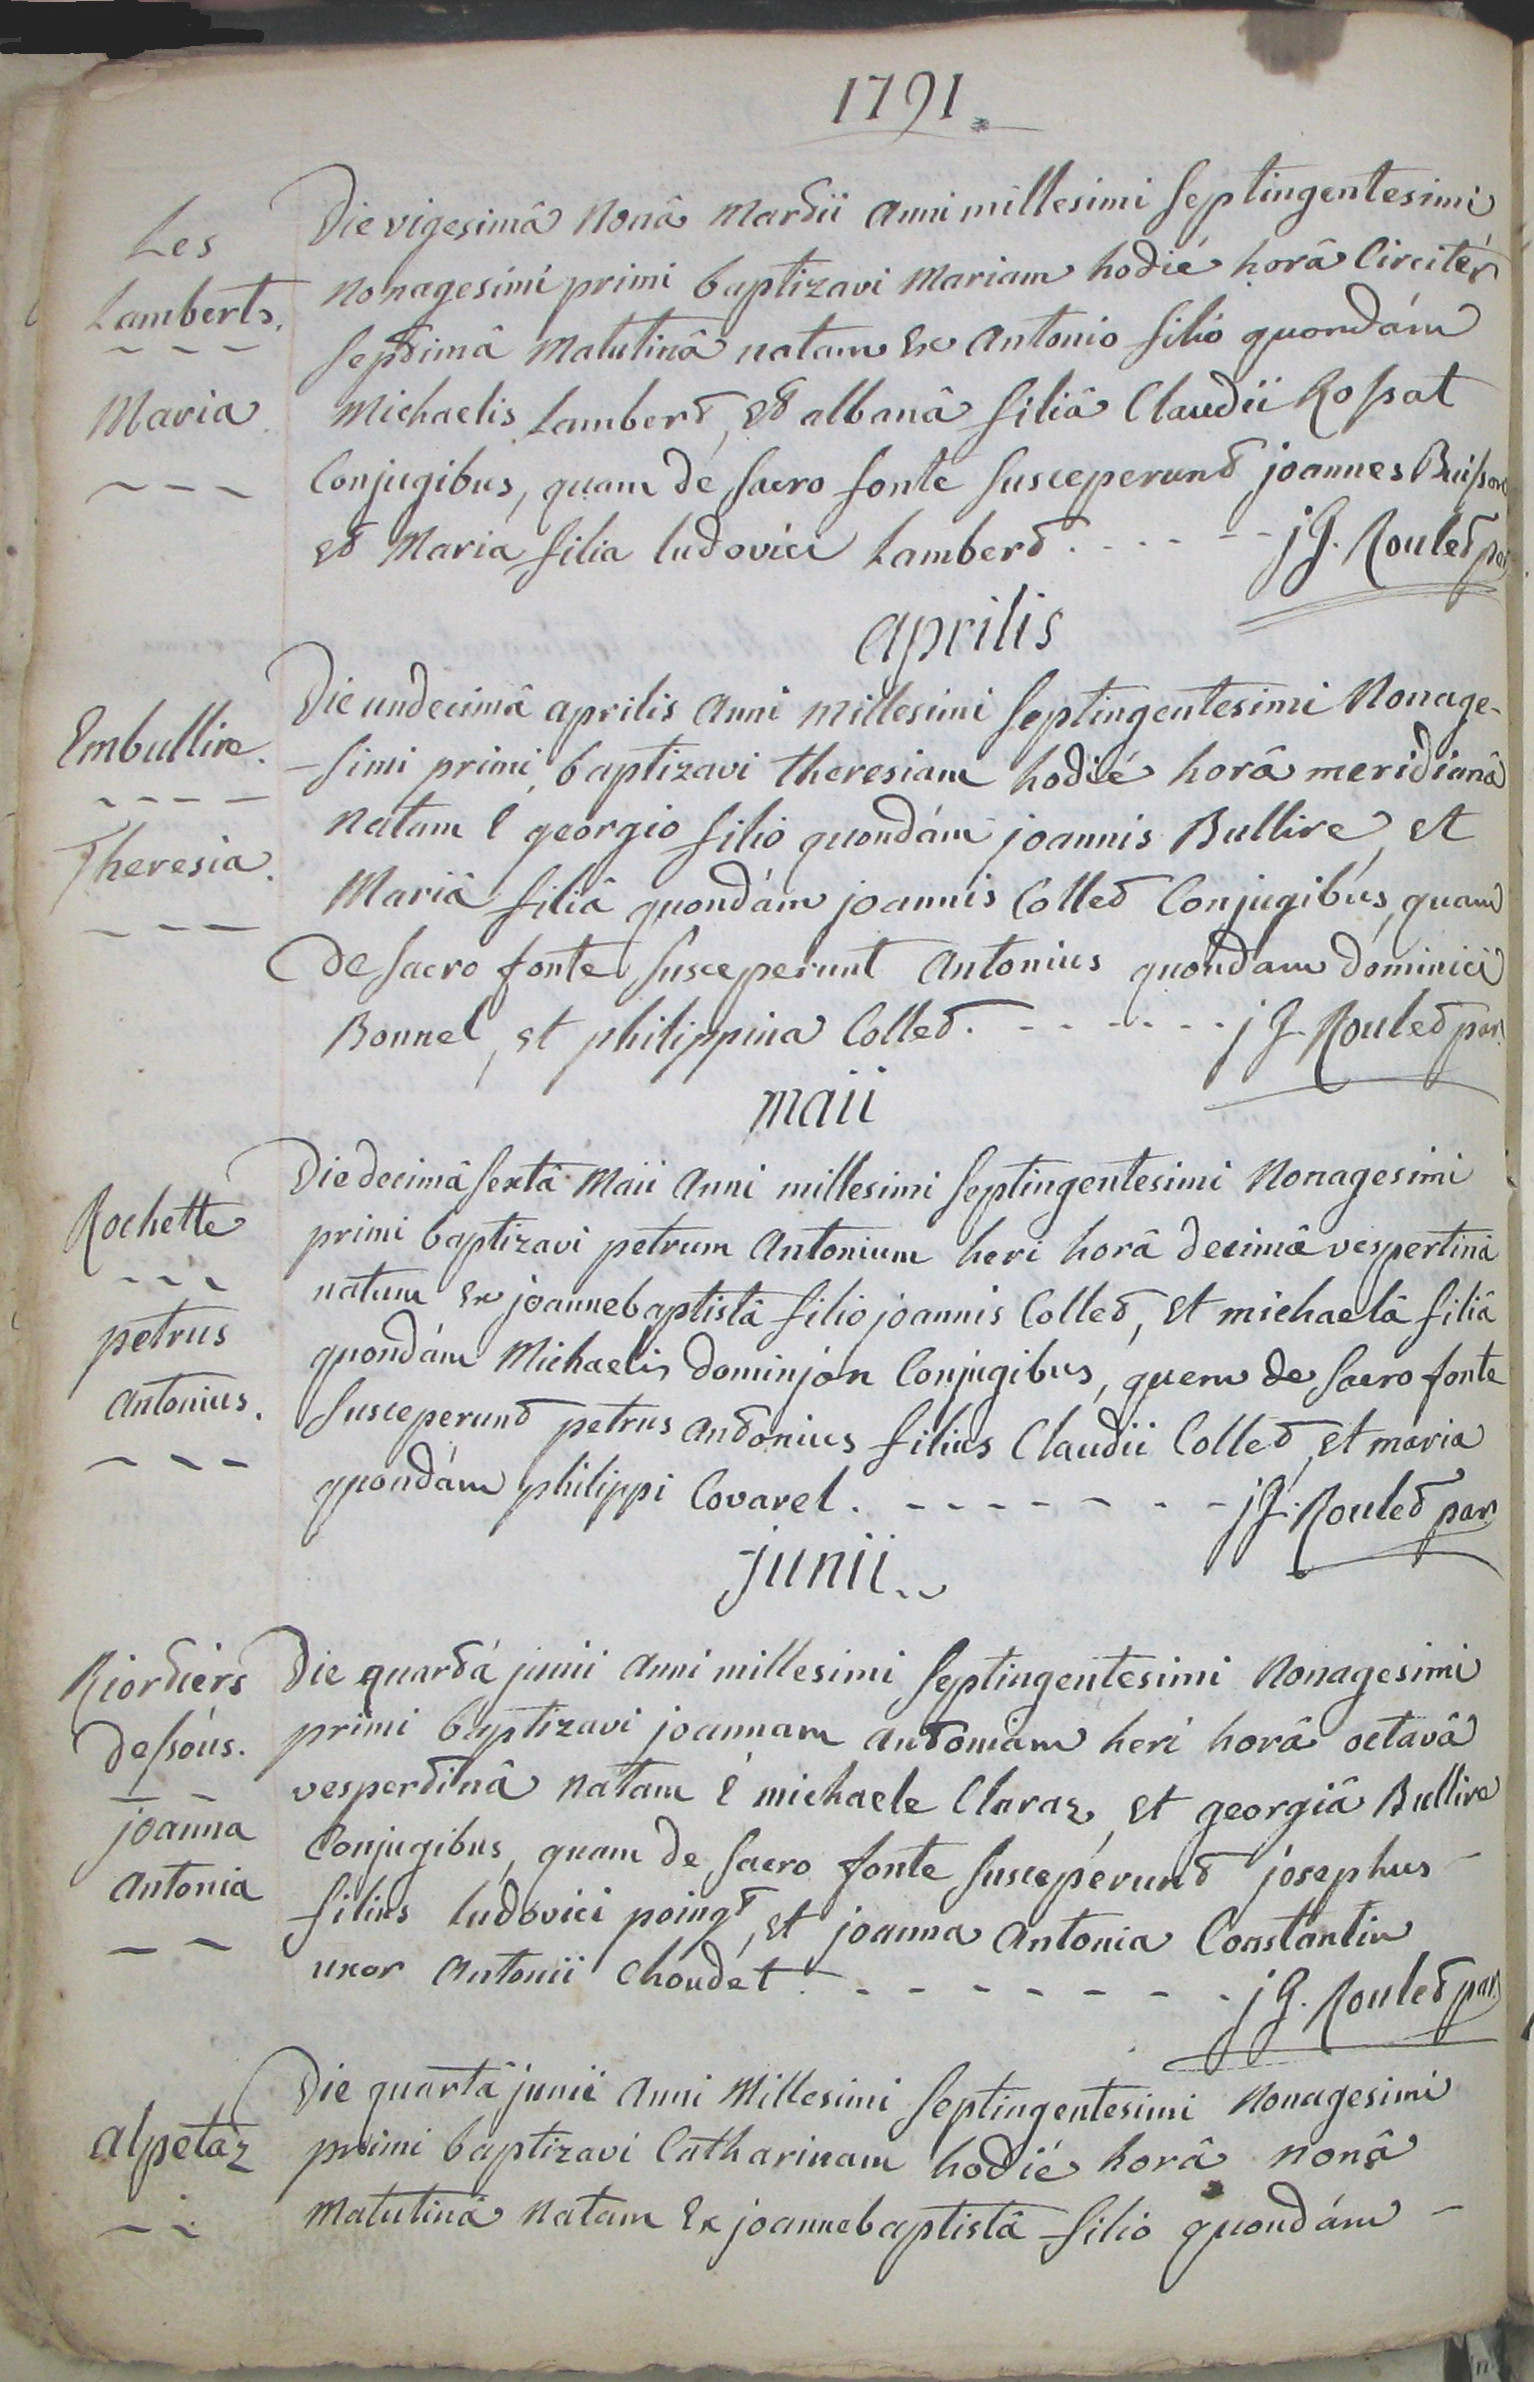 1791.
Les
Lamberts.
Maria
Die vigesimâ nonâ Martii anni millesimi septingentesimi
nonagesimi primi baptizavi Mariam hodié horâ circitér
septimâ matutinâ natam ex Antonio filio quondám
Michaelis Lambert, et albanâ filiâ Claudii Rossat
Conjugibus, quam de sacro fonte susceperunt joannes Buisson
et Maria filia ludovici Lambert. j G. Roulet par
aprilis
Embullire.
Theresia.
Die undecimâ aprilis anni millesimi septingentesimi Nonage-
-simi primi, baptizavi theresiam hodié horâ meridianâ
natam é georgio filio quondám joannis Bullire, et
Mariâ filiâ quondám joannis Collet Conjugibus, quam
de sacro fonte susceperunt Antonius quondam dominici
Bonnel, et philippina Collet. j G. Roulet par.
maii
Rochette
petrus
antonius.
Die decimâ sextâ Maii anni millesimi septingentesimi Nonagesimi
primi baptizavi petrum Antonium heri horâ decimâ vespertinâ
natum ex joannebaptistâ filio joannis Collet, et michaelâ filiâ
quondám Michaelis dominjon Conjugibus, quem de sacro fonte
susceperunt petrus antonius filius Claudii Collet, et maria
quondám philippi Covarel. j G. Roulet par.
junii
Riortiers
dessóus.
joanna
antonia
Die quartâ junii anni millesimi septingentesimi Nonagesimi
primi baptizavi joannam antoniam heri horâ octavâ
vespertinâ natam é michaele Claraz, et georgiâ Bullire
Conjugibus, quam de sacro fonte susceperunt josephus
filius ludovici poingt, et joanna Antonia Constantin
uxor Antonii Choudet. j G. Roulet par.
alpetaz
Die quartâ junii anni Millesimi septingentesimi Nonagesimi
primi baptizavi Catharinam hodié horâ nonâ
matutinâ natam ex joannebaptistâ filio quondám